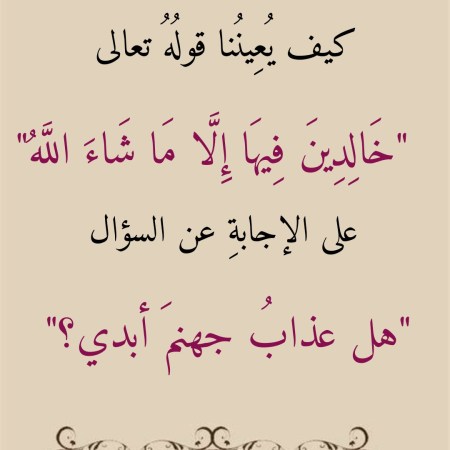 كيف يُعِينُنا قولُهُ تعالى
"خَالِدِينَ فِيهَا إِلَّا مَا شَاءَ اللَّهُ"
على الإجابةِ عن السؤال
"هل عذابُ جهنمَ أبدي؟"